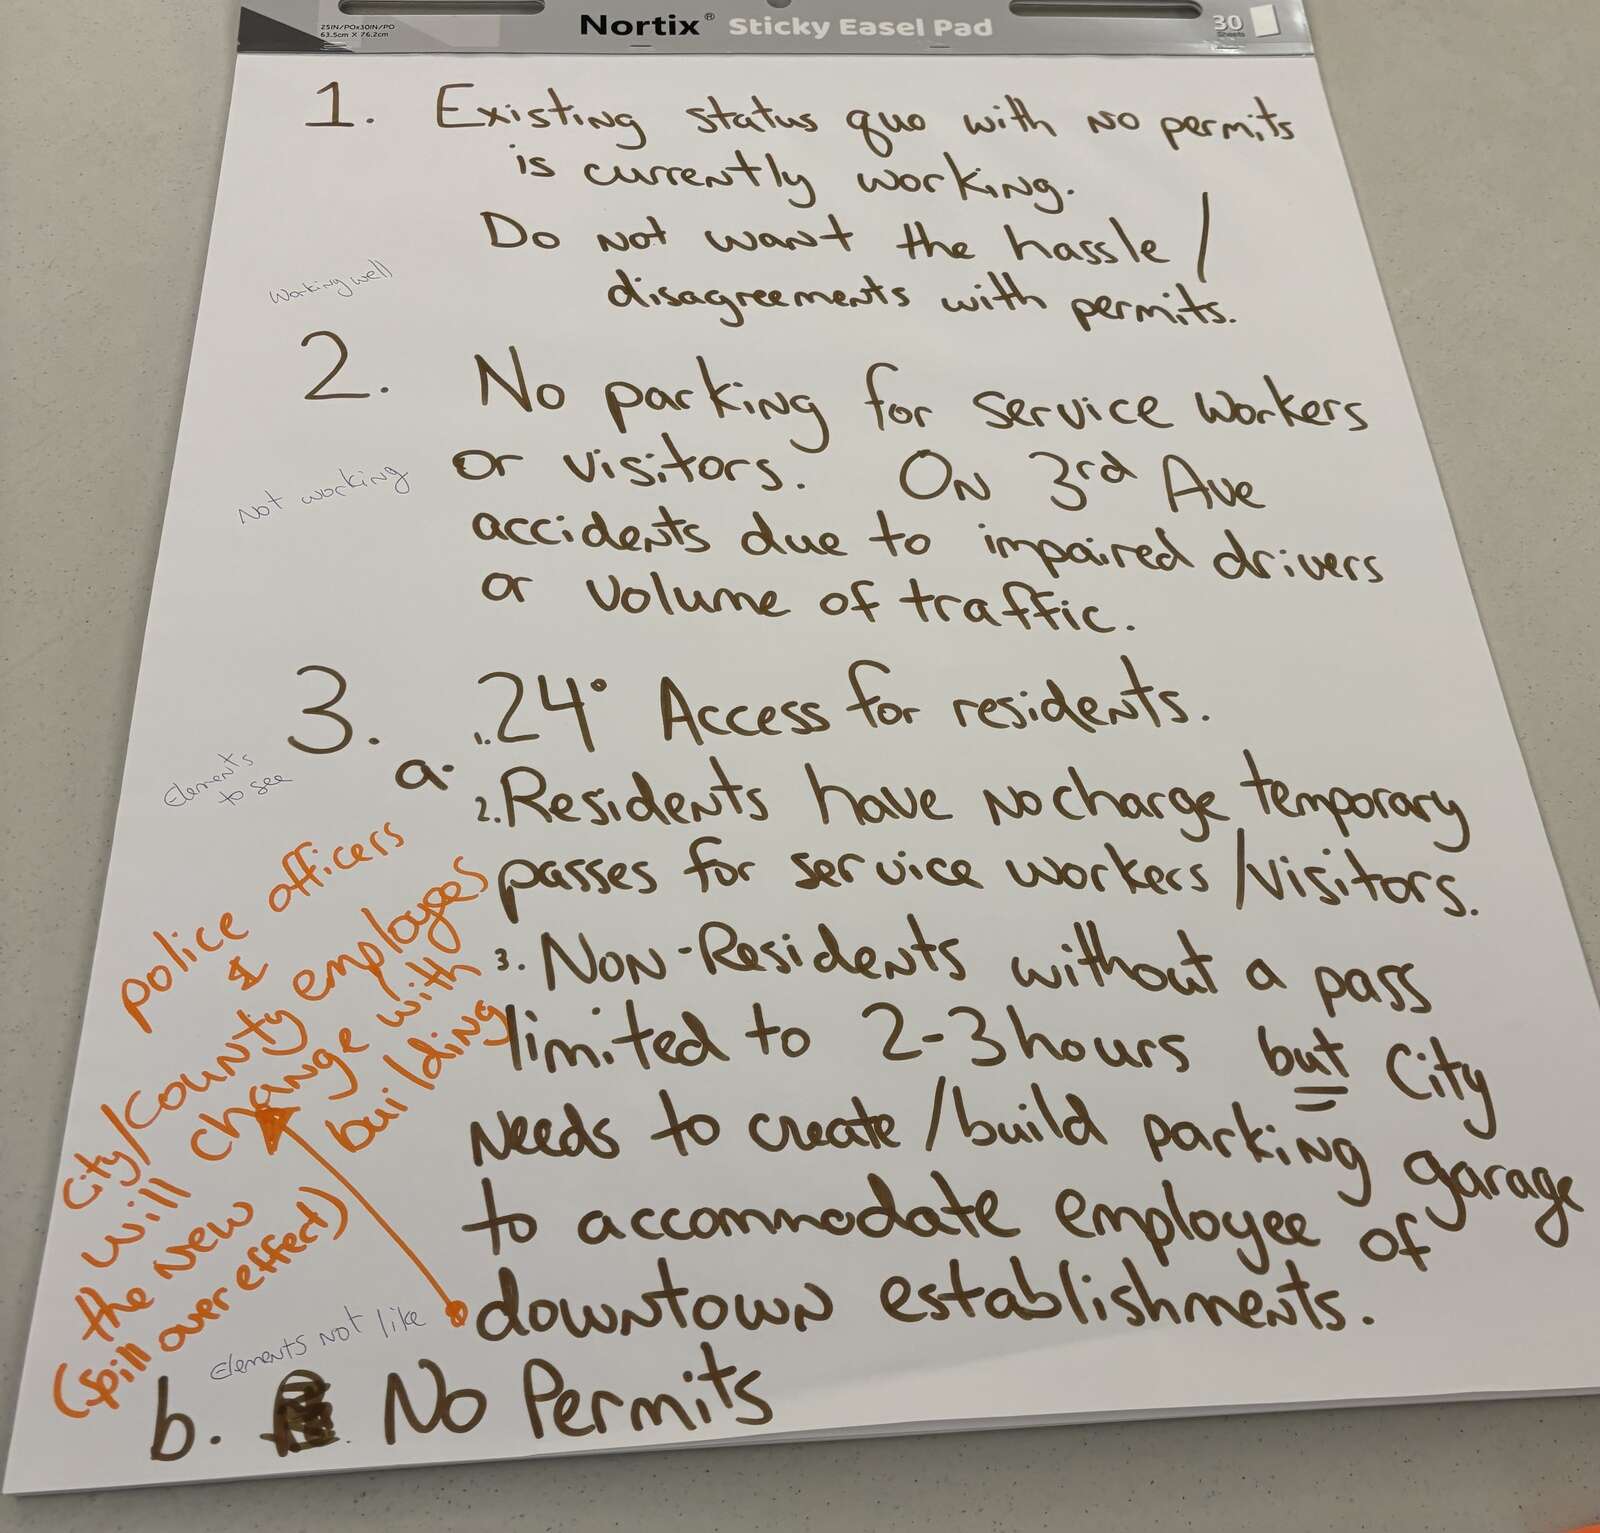 25IN/POx30IN/PO
63.5cm X 76.2cm
Nortix® Sticky Easel Pad
30
Sheets
1. Existing status quo with no permits
is currently working.
Do not want the hassle /
disagreements with permits.
Working well
2. No parking for service workers
or visitors. On 3rd Ave
accidents due to impaired drivers
or volume of traffic.
Not working
3. 1. 24° Access for residents.
Elements
to see
a. 2. Residents have no charge temporary
passes for service workers/visitors.
3. Non-Residents without a pass
limited to 2-3 hours but City
needs to create/build parking garage
to accommodate employee of
downtown establishments.
police officers
&
city/county employees
will change with
the new building
(spill over effect)
Elements not like
b. No Permits